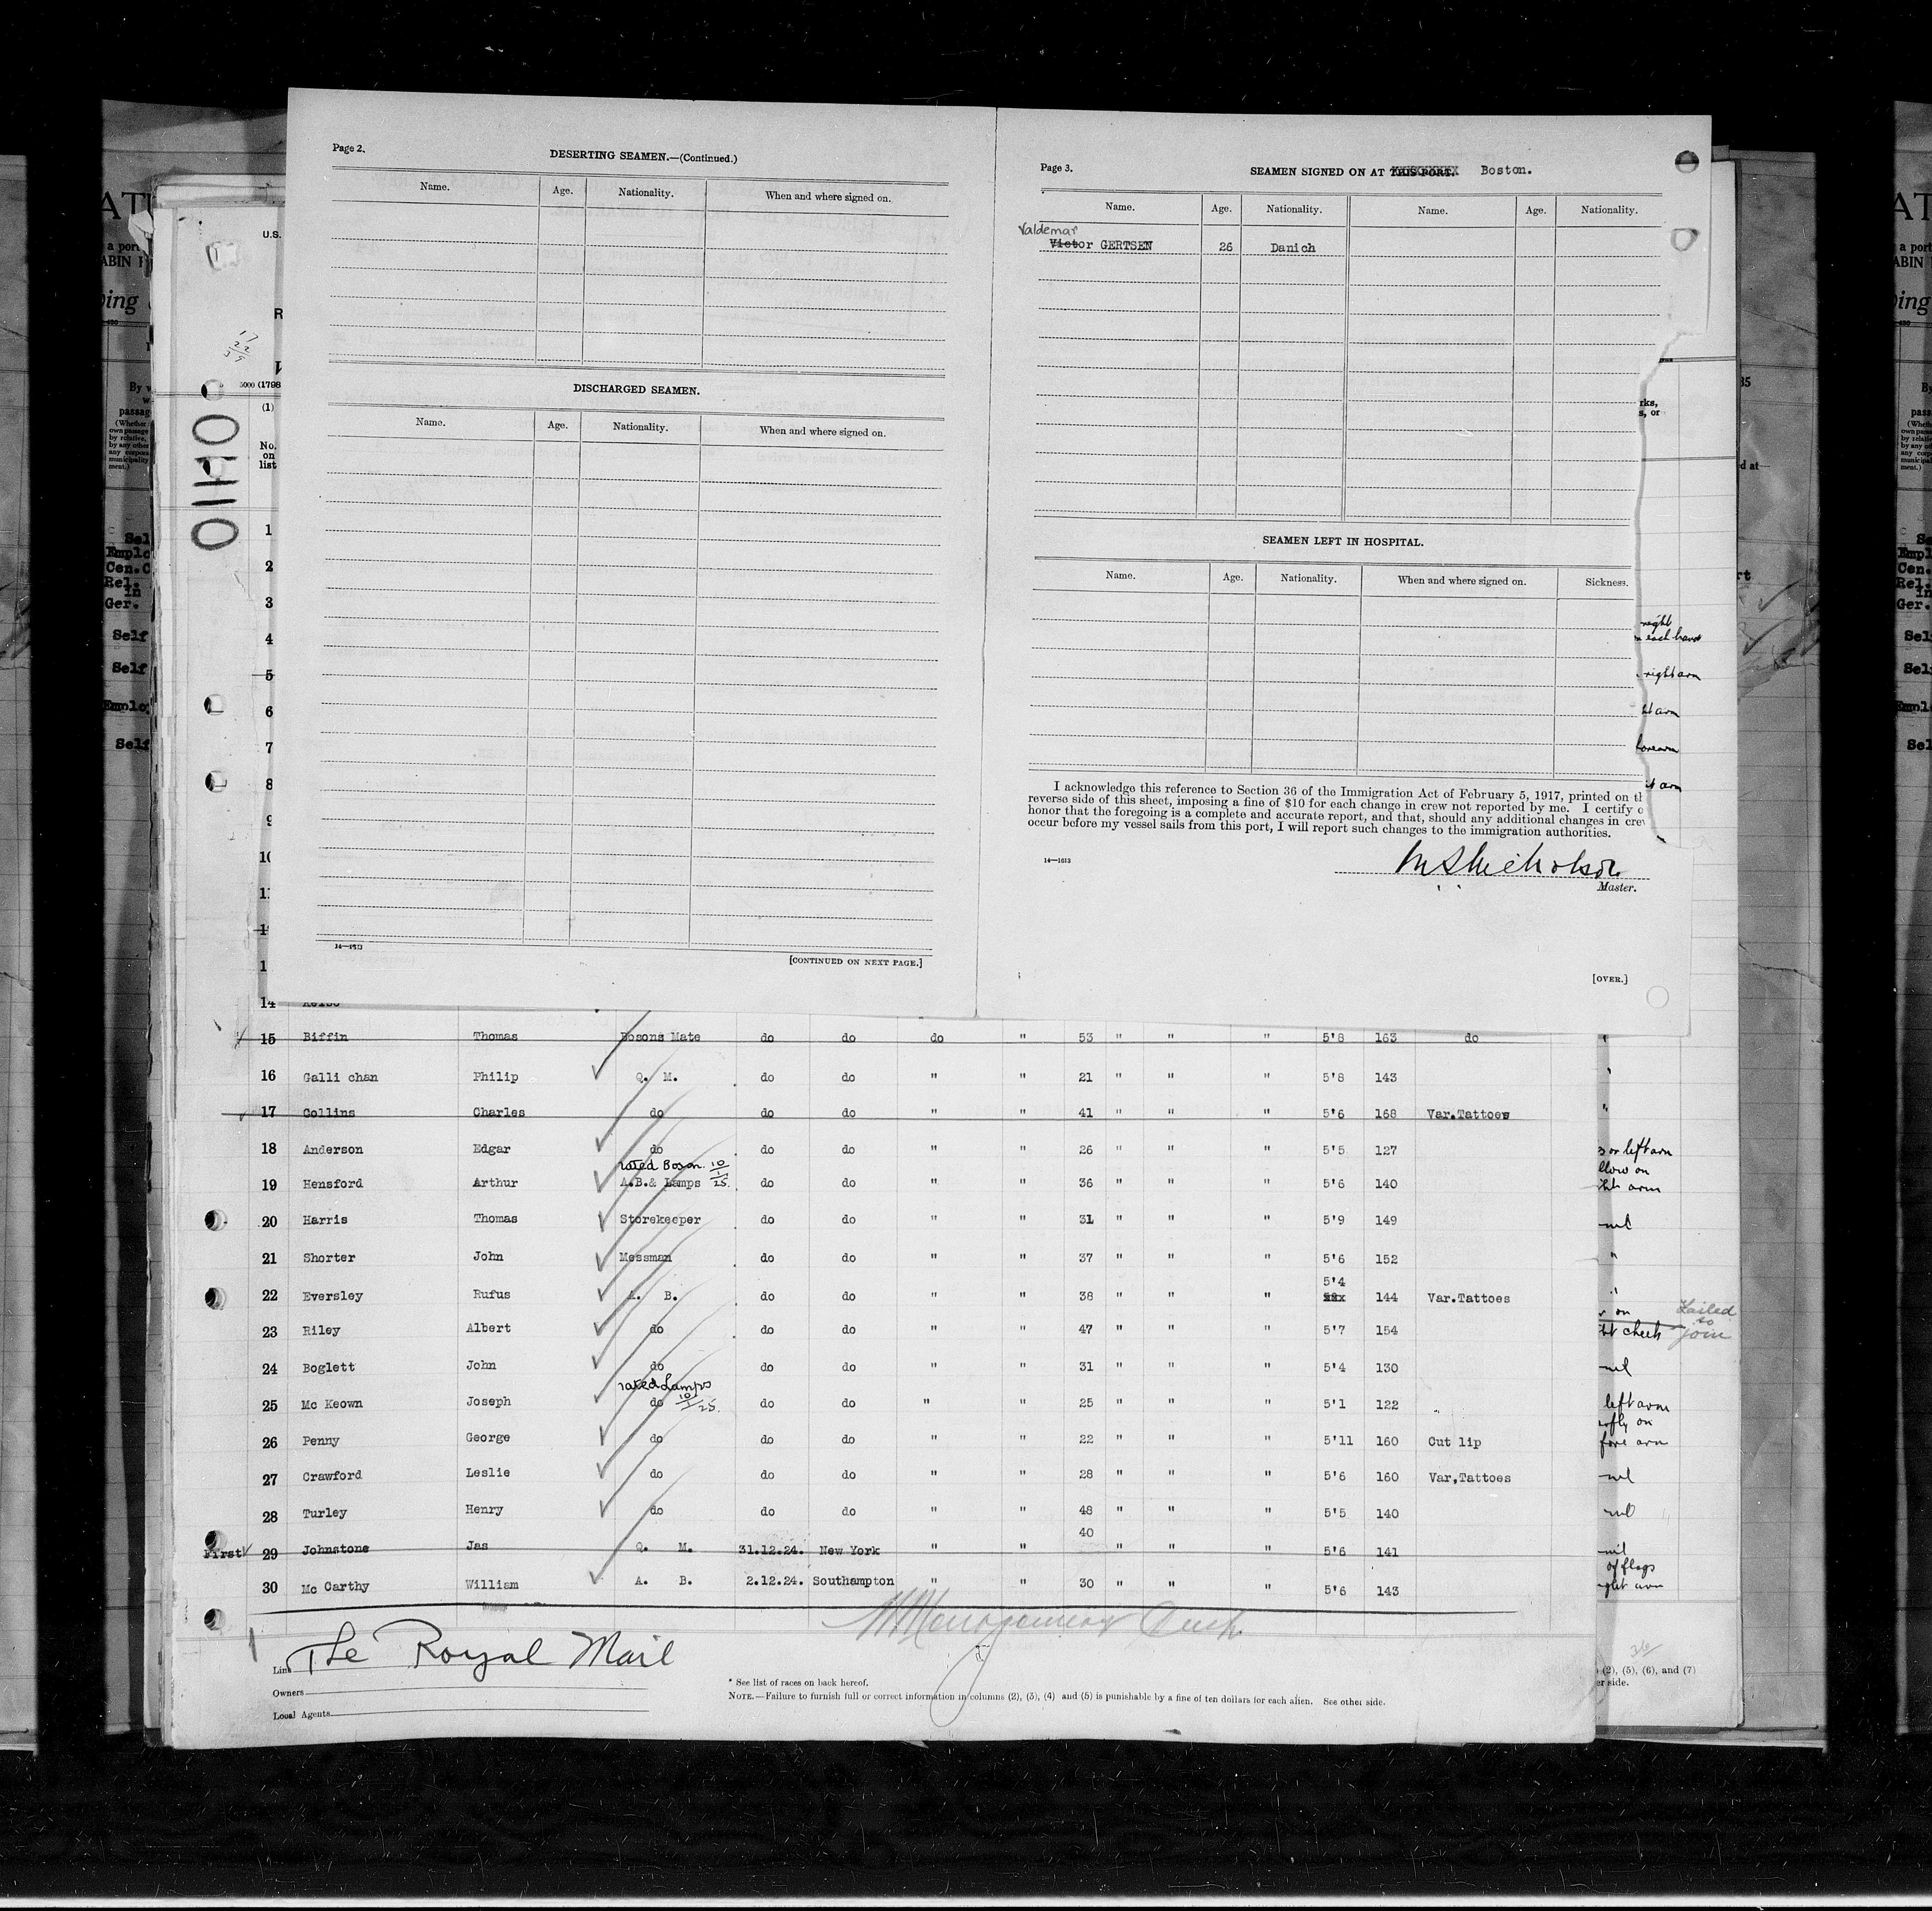 Page 2.
DESERTING SEAMEN.—(Continued.)
Name. Age. Nationality. When and where signed on.
DISCHARGED SEAMEN.
Name. Age. Nationality. When and where signed on.
14—1613
[CONTINUED ON NEXT PAGE.]
Page 3.
SEAMEN SIGNED ON AT THIS PORT. Boston.
Name. Age. Nationality. Name. Age. Nationality.
Valdemar
Victor GERTSEN 26 Danich
SEAMEN LEFT IN HOSPITAL.
Name. Age. Nationality. When and where signed on. Sickness.
I acknowledge this reference to Section 36 of the Immigration Act of February 5, 1917, printed on th
reverse side of this sheet, imposing a fine of $10 for each change in crew not reported by me. I certify o
honor that the foregoing is a complete and accurate report, and that, should any additional changes in crew
occur before my vessel sails from this port, I will report such changes to the immigration authorities.
14—1613
Master.
[OVER.]
U.S.
5000 (1798
(1)
No.
on
list
01140
1
2
3
4
5
6
7
8
9
10
11
14 Kelso
15 Biffin Thomas Bosons Mate do do do " 53 " " " 5'8 163 do
16 Galli chan Philip Q. M. do do " " 21 " " " 5'8 143
17 Collins Charles do do do " " 41 " " " 5'6 168 Var.Tattoes
18 Anderson Edgar do do do " " 26 " " " 5'5 127
rated Boson 10/1/25.
19 Hensford Arthur A.B.& Lamps do do " " 36 " " " 5'6 140
20 Harris Thomas Storekeeper do do " " 31 " " " 5'9 149
21 Shorter John Messman do do " " 37 " " " 5'6 152
5'4
22 Eversley Rufus A. B. do do " " 38 " " " 144 Var.Tattoes
23 Riley Albert do do do " " 47 " " " 5'7 154
24 Boglett John do do do " " 31 " " " 5'4 130
rated Lamps 10/1/25.
25 Mc Keown Joseph do do do " " 25 " " " 5'1 122
26 Penny George do do do " " 22 " " " 5'11 160 Cut lip
27 Crawford Leslie do do do " " 28 " " " 5'6 160 Var,Tattoes
28 Turley Henry do do do " " 48 " " " 5'5 140
40
First 29 Johnstone Jas Q. M. 31.12.24. New York " " " " " 5'6 141
30 Mc Carthy William A. B. 2.12.24. Southampton " " 30 " " " 5'6 143
Line The Royal Mail
Owners
Local Agents
* See list of races on back hereof.
NOTE.—Failure to furnish full or correct information in columns (2), (3), (4) and (5) is punishable by a fine of ten dollars for each alien. See other side.
right
each hand
right arm
arm
forearm
arm
or left arm
on
arm
nil
"
on
cheek
Failed
to
join
nil
left arm
on
fore arm
nil
nil
nil
of flags
arm
(2), (5), (6), and (7)
er side.
Self
Self
Self